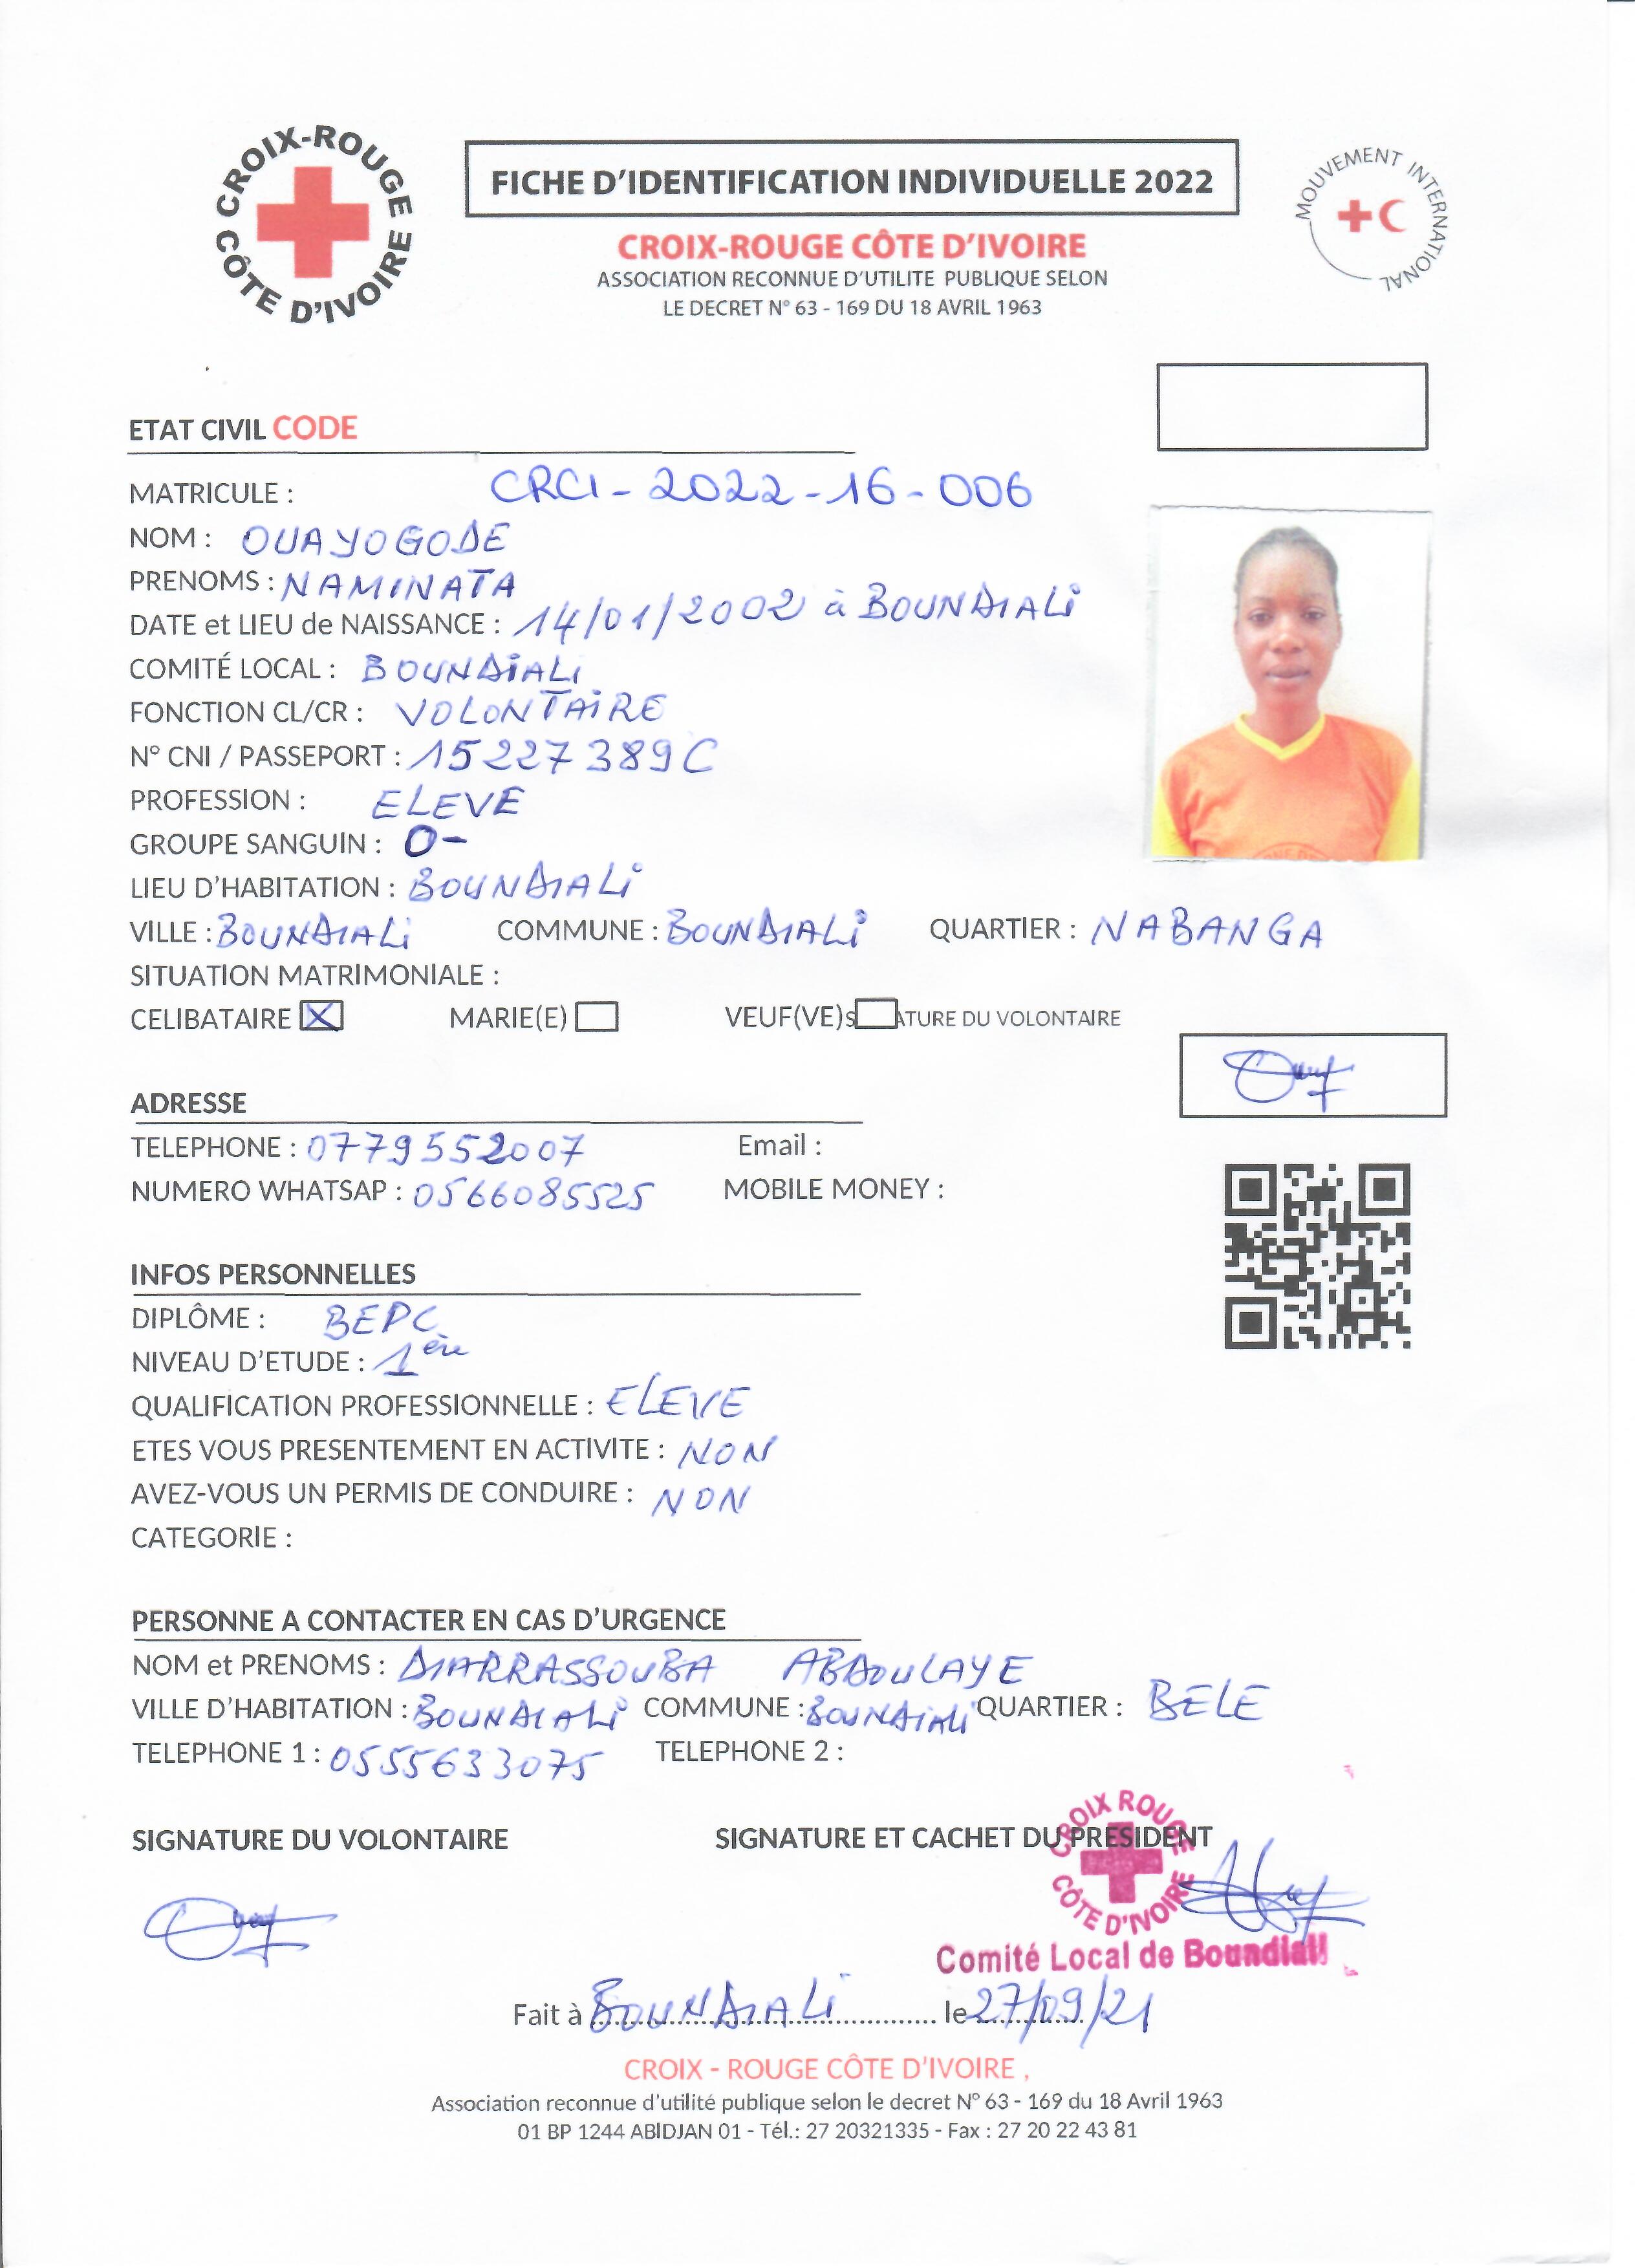 CROIX-ROUGE CÔTE D'IVOIRE
FICHE D'IDENTIFICATION INDIVIDUELLE 2022
MOUVEMENT INTERNATIONAL
CROIX-ROUGE CÔTE D'IVOIRE
ASSOCIATION RECONNUE D'UTILITE PUBLIQUE SELON
LE DECRET N° 63 - 169 DU 18 AVRIL 1963
ETAT CIVIL CODE
MATRICULE : CRCI - 2022 - 16 - 006
NOM : OUAYOGODE
PRENOMS : NAMINATA
DATE et LIEU de NAISSANCE : 14/01/2002 à BOUNDIALI
COMITÉ LOCAL : BOUNDIALI
FONCTION CL/CR : VOLONTAIRE
N° CNI / PASSEPORT : 15227389C
PROFESSION : ELEVE
GROUPE SANGUIN : O-
LIEU D'HABITATION : BOUNDIALI
VILLE : BOUNDIALI COMMUNE : BOUNDIALI QUARTIER : NABANGA
SITUATION MATRIMONIALE :
CELIBATAIRE X MARIE(E) VEUF(VE) S ATURE DU VOLONTAIRE
ADRESSE
TELEPHONE : 0779552007 Email :
NUMERO WHATSAP : 0566085525 MOBILE MONEY :
INFOS PERSONNELLES
DIPLÔME : BEPC
NIVEAU D'ETUDE : 1ère
QUALIFICATION PROFESSIONNELLE : ELEVE
ETES VOUS PRESENTEMENT EN ACTIVITE : NON
AVEZ-VOUS UN PERMIS DE CONDUIRE : NON
CATEGORIE :
PERSONNE A CONTACTER EN CAS D'URGENCE
NOM et PRENOMS : DIARRASSOUBA ABDOULAYE
VILLE D'HABITATION : BOUNDIALI COMMUNE : BOUNDIALI QUARTIER : BELE
TELEPHONE 1 : 0555633075 TELEPHONE 2 :
SIGNATURE DU VOLONTAIRE SIGNATURE ET CACHET DU PRESIDENT
CROIX ROUGE CÔTE D'IVOIRE
Comité Local de Boundiali
Fait à BOUNDIALI le 27/09/21
CROIX - ROUGE CÔTE D'IVOIRE ,
Association reconnue d'utilité publique selon le decret N° 63 - 169 du 18 Avril 1963
01 BP 1244 ABIDJAN 01 - Tél.: 27 20321335 - Fax : 27 20 22 43 81